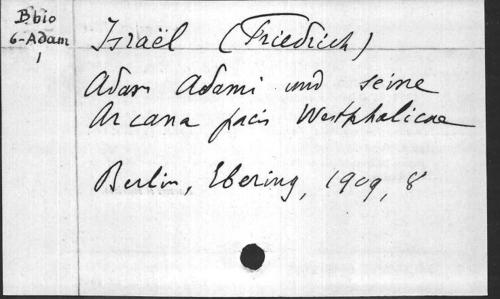 Bbio
6-Adam
1
Israël (Friedrich)
Adam Adami und seine
Arcana pacis Westphalicae
Berlin, Ebering, 1909, 8